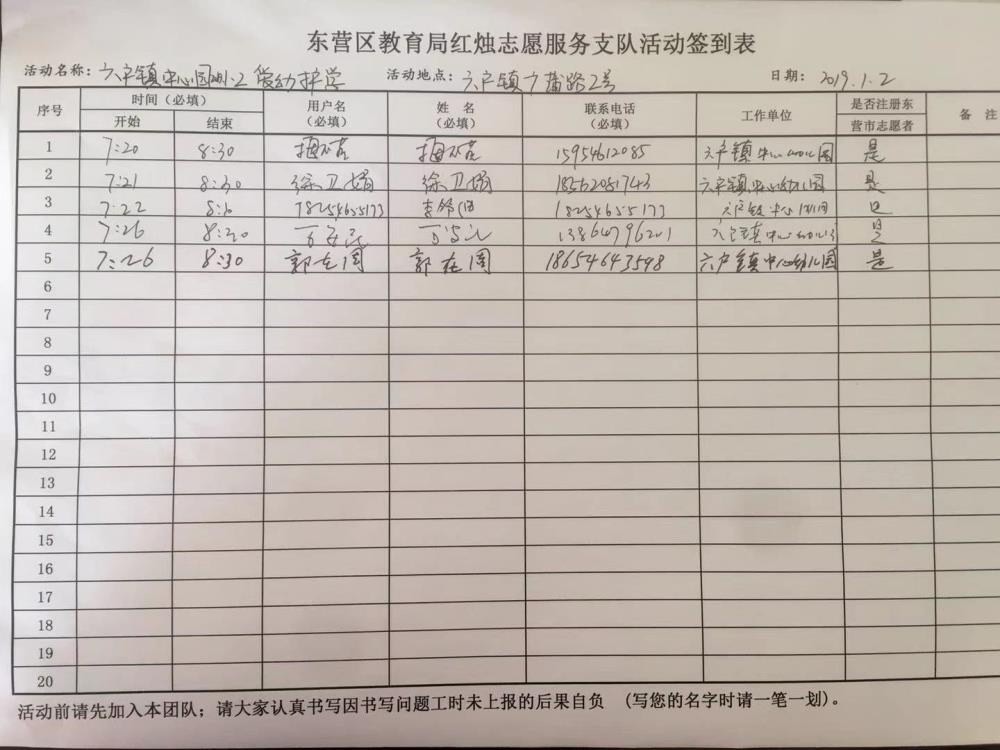 东营区教育局红烛志愿服务支队活动签到表
活动名称：六户镇中心园 爱幼护学 活动地点：六户镇广蒲路2号 日期：2019.1.2
序号 时间（必填） 用户名（必填） 姓 名（必填） 联系电话（必填） 工作单位 是否注册东营市志愿者 备 注
开始 结束
1 7:20 8:30 15954612085 六户镇中心幼儿园 是
2 7:21 8:30 徐卫娟 徐卫娟 18562081743 六户镇中心幼儿园 是
3 7:22 18254655173 18254655173 六户镇中心幼儿园 是
4 7:26 8:30 13864796201 六户镇中心幼儿园 是
5 7:26 8:30 郭在阁 郭在阁 18654643598 六户镇中心幼儿园 是
6
7
8
9
10
11
12
13
14
15
16
17
18
19
20
活动前请先加入本团队；请大家认真书写因书写问题工时未上报的后果自负 （写您的名字时请一笔一划）。